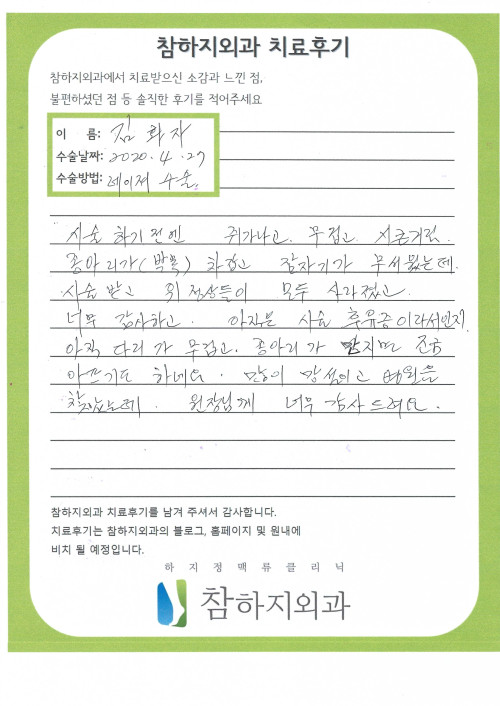 참하지외과 치료후기
참하지외과에서 치료받으신 소감과 느낀 점,
불편하셨던 점 등 솔직한 후기를 적어주세요
이 름: 김화자
수술날짜: 2020. 4. 27
수술방법: 레이져 수술
시술 하기 전엔 쥐가나고. 무겁고. 시큰거림.
종아리가( ) 차갑고 잠자기가 무서웠는데.
시술 받고 위 증상들이 모두 사라졌고.
너무 감사하고. 아직은 시술 후유증이라서인지
아직 다리가 무겁고. 종아리가 만지면 조금
아프기도 하네요. 많이 망설이고 병원을
찾았는데. 원장님께 너무 감사드려요.
참하지외과 치료후기를 남겨 주셔서 감사합니다.
치료후기는 참하지외과의 블로그, 홈페이지 및 원내에
비치 될 예정입니다.
하지정맥류클리닉
참하지외과